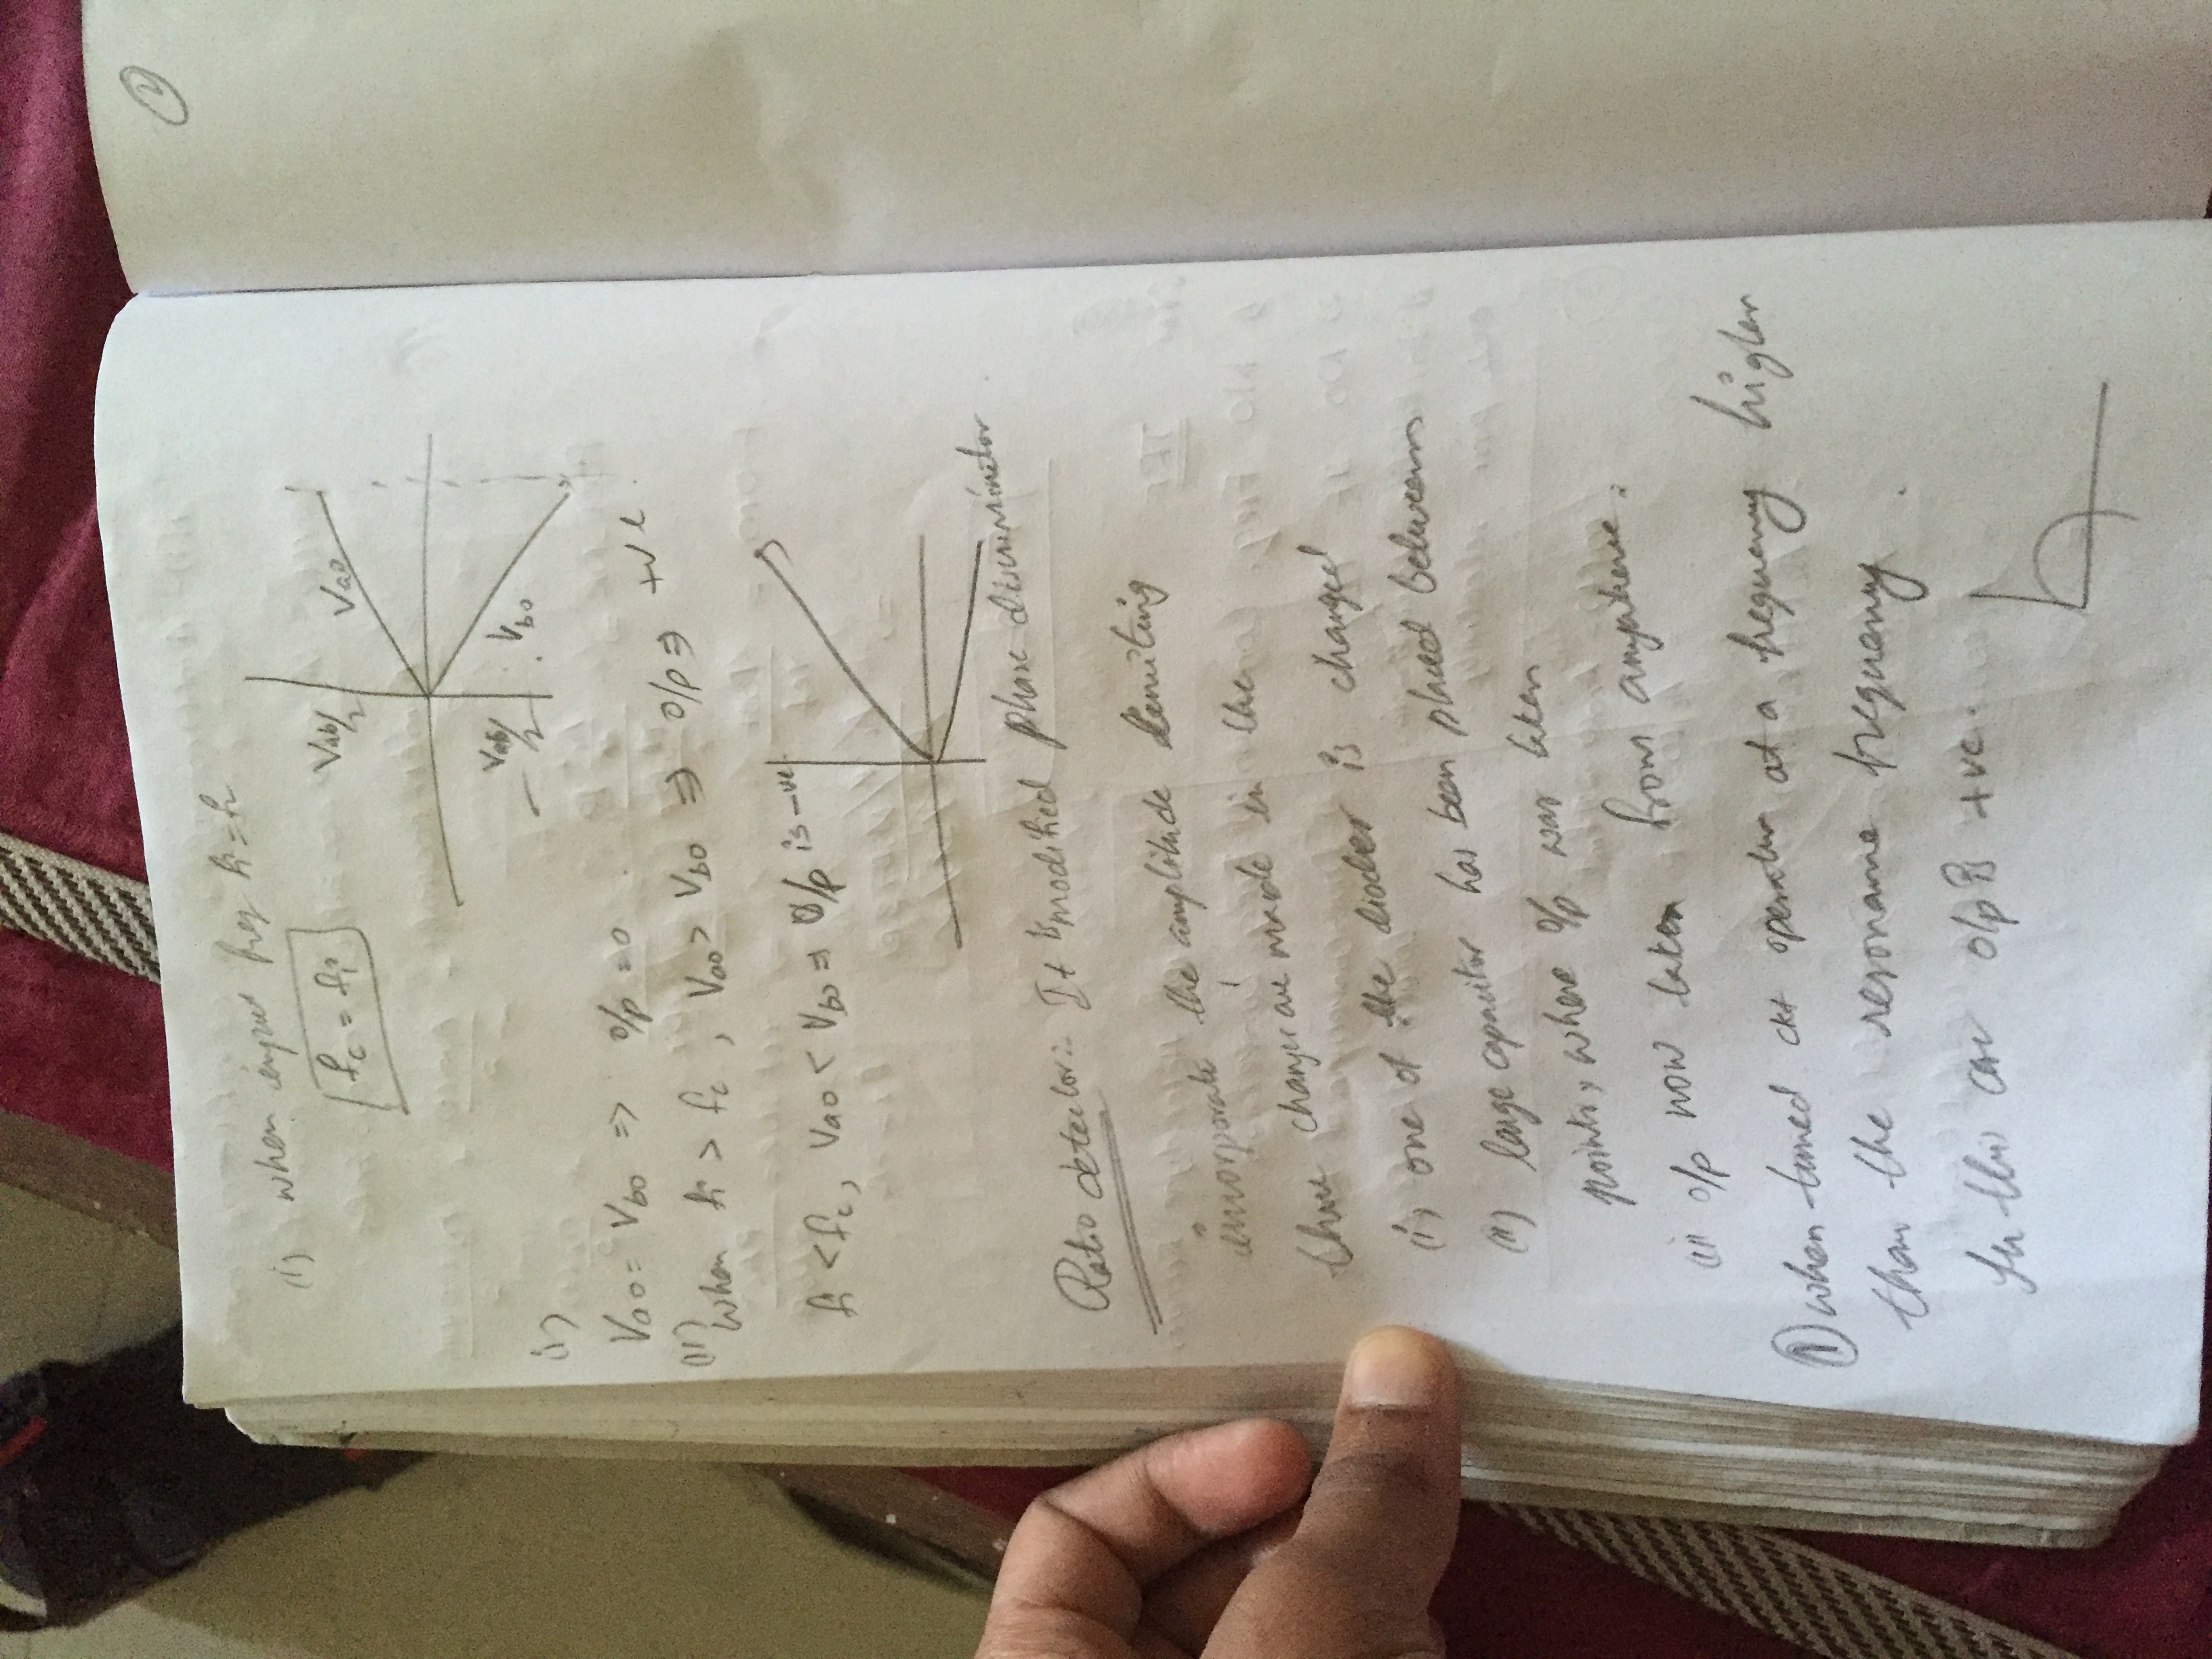 (i) when input freq fi = fc
fc = fi
Vab/2
Vao
- Vab/2
Vbo
(i)
Vao = Vbo => o/p = 0
(ii) when fi > fc , Vao > Vbo => o/p => +ve
fi < fc, Vao < Vbo => o/p is -ve
Ratio detector:- It is modified phase discriminator
incorporate the amplitude limiting
three changes are made in the
(i) one of the diodes is changed
(ii) large capacitor has been placed between
points, where o/p was taken
(iii) o/p now taken from anywhere.
① when tuned ckt operates at a frequency higher
than the resonance frequency
In this case o/p is +ve.